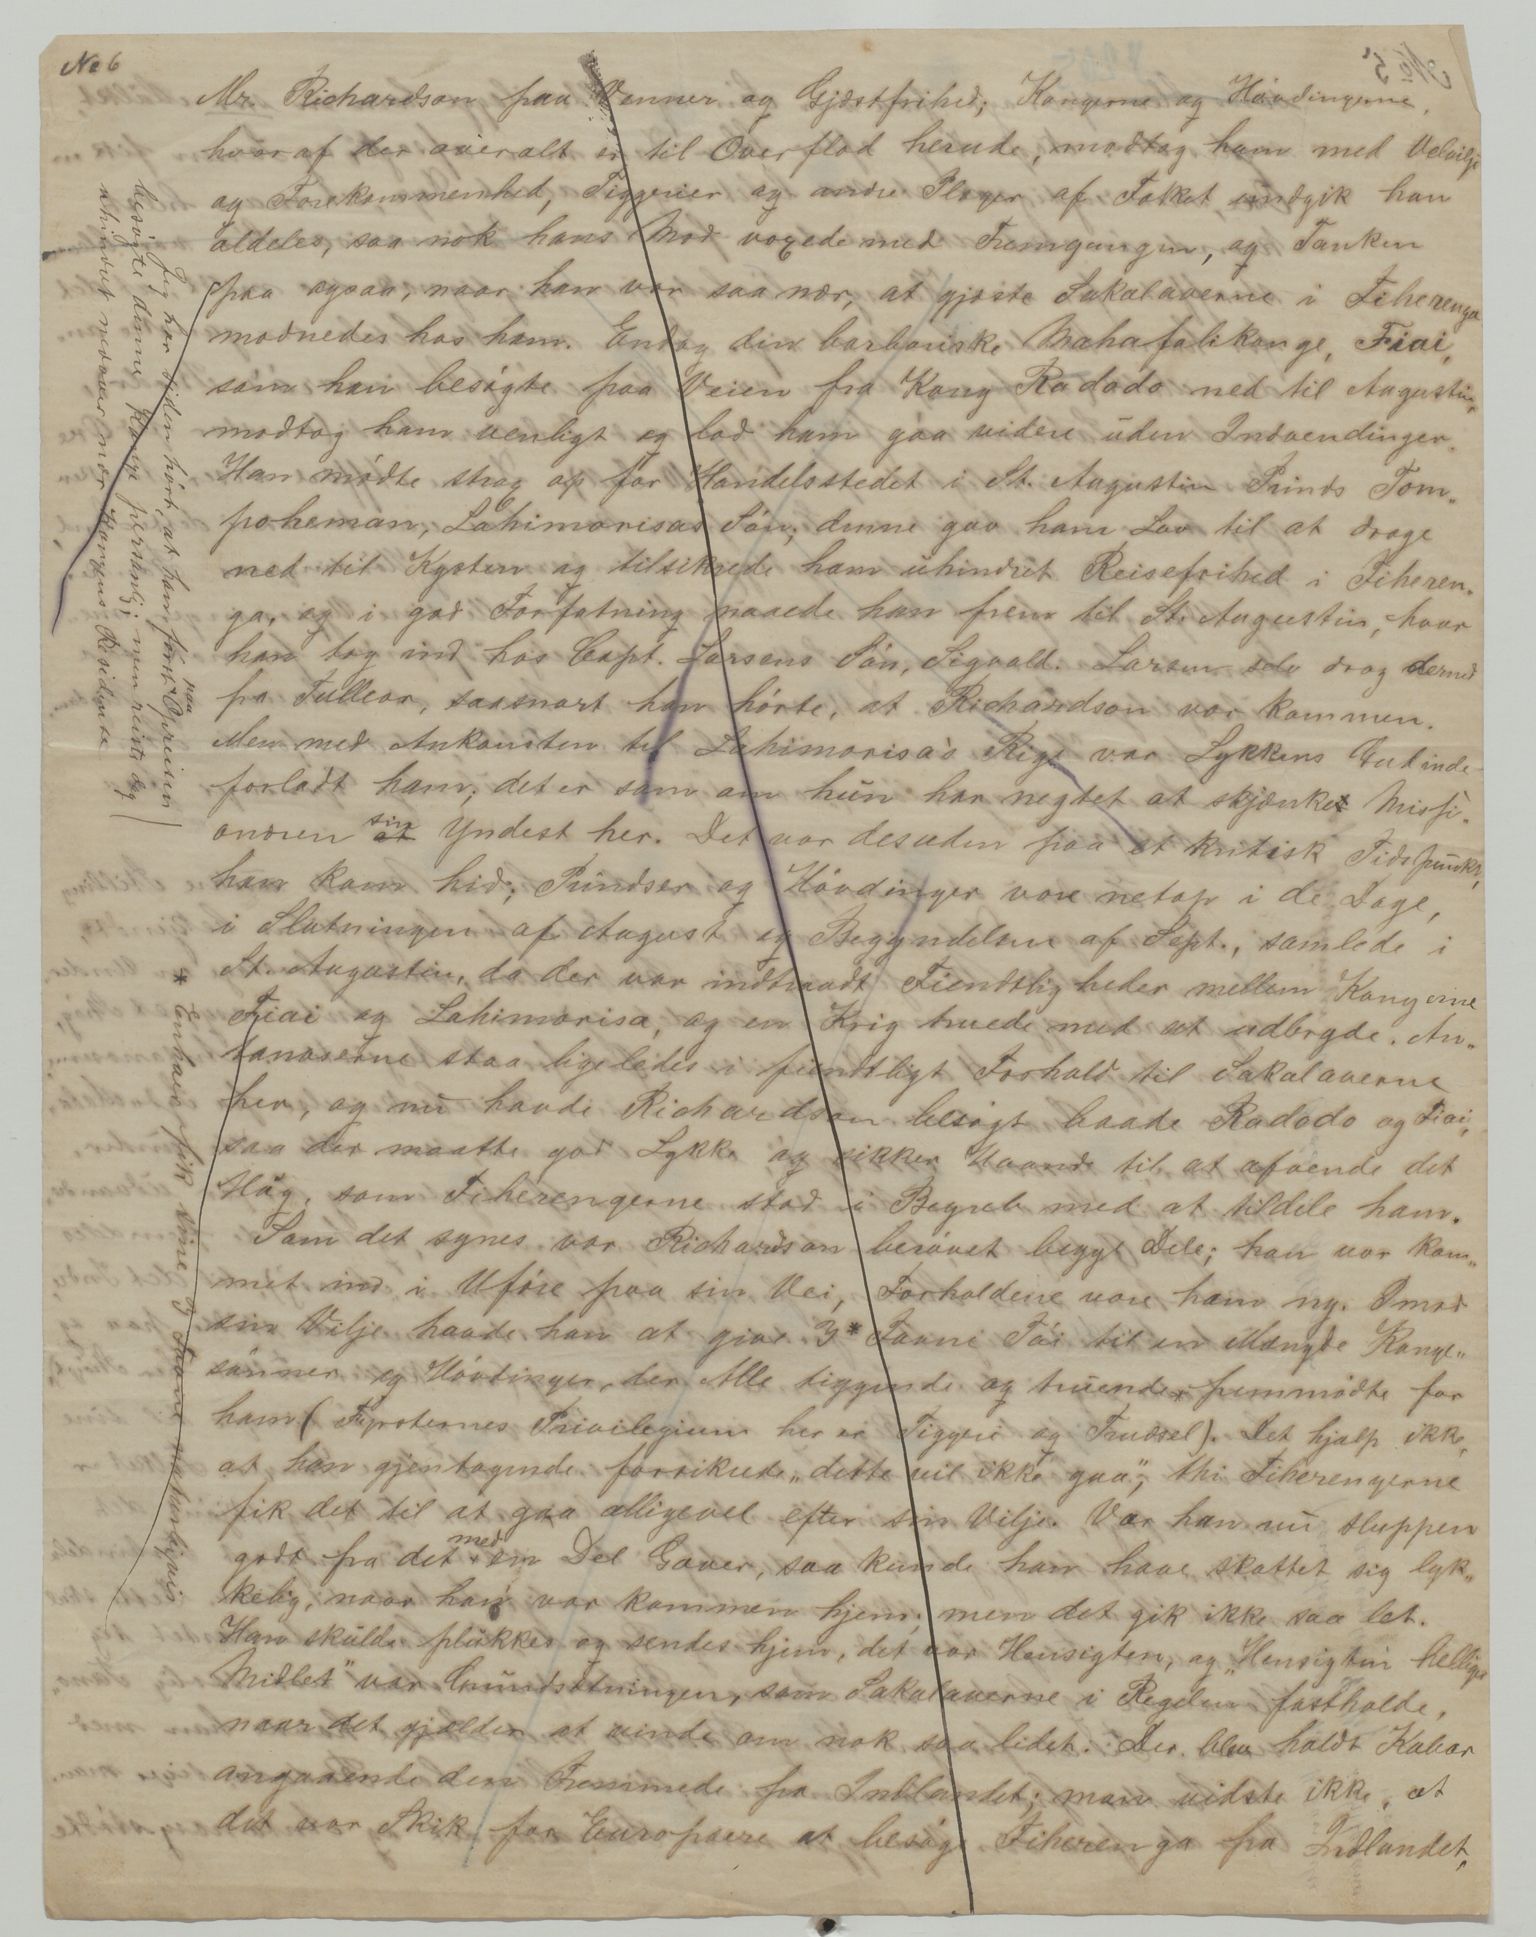 No 6
No 5
Mr. Richardson paa Venner og Gjæstfrihed; Kongerne og Hövdingerne,
hvoraf der overalt er til Overflod herude, modtog ham med Velvilje
og Forekommenhed, Tiggerier og andre Plager af Folket undgik han
aldeles, saa nok hans Mod voxede med Fremgangen, og Tanken
paa ogsaa, naar han var saa nær, at gjæste Sakalaverne i Fiherenga
modnedes hos ham. Endog den barbariske Mahafalikonge, Fiai,
som han besögte paa Veien fra Kong Radodo ned til Augustin,
modtog ham venligt og lod ham gaa videre uden Indvendinger.
Han mödte strax op for Handelsstedet i St. Augustin Prinds Tom-
poheman, Lahimorisas Sön; denne gav ham Lov til at drage
ned til Kysten og tilsikrede ham uhindret Reisefrihed i Fiheren-
ga, og i god Forfatning naaede han frem til St. Augustin, hvor
han tog ind hos Capt. Larsens Sön, Sigvald. Larsen selv drog derned
fra Tullear, saasnart han hörte, at Richardson var kommen.
Men med Ankomsten til Lahimorisa's Rige var Lykkens Gudinde
forladt ham; det er som om hun har negtet at skjænke Missi-
onæren sin Yndest her. Det var desuden paa et kritisk Tidspunkt,
han kom hid; Prindser og Hövdinger vare netop i de Dage,
i Slutningen af August og Begyndelsen af Sept., samlede i
St. Augustin, da der var indtraadt Fiendtligheder mellem Kongerne
Fiai og Lahimorisa, og en Krig truede med at udbryde. An-
tanoserne staa ligeledes i fiendtligt Forhold til Sakalaverne
her, og nu havde Richardson besögt baade Radodo og Fiai,
saa der maatte god Lykke og sikker Haand til at afvende det
Hug, som Fiherengerne stod i Begreb med at tildele ham.
Som det synes var Richardson berövet begge Dele; han var kom-
met ind i Uföre paa sin Vei, Forholdene vare ham ny. Imod
sin Vilje havde han at give 3* Favne Töi til en Mængde Konge-
sönner og Hövdinger, der Alle tiggende og truende fremmödte for
ham (Fyrsternes Privilegium her er Tiggeri og Trudsel). Det hjalp ikke,
at han gjentagende forsikrede „dette vil ikke gaa", thi Fiherengerne
fik det til at gaa alligevel efter sin Vilje. Var han nu sluppen
godt fra det med en Del Gaver, saa kunde han have skattet sig lyk-
kelig, naar han var kommen hjem; men det gik ikke saa let.
Han skulde plukkes og sendes hjem, det var Hensigten, og „Hensigten helliger
Midlet" var Grundsætningen, som Sakalaverne i Regelen fastholde,
naar det gjælder at vinde om nok saa lidet. Der blev holdt Kabar
angaaende den Fremmede fra Indlandet; man vidste ikke, at
det var Skik for Europæere at besöge Fiherenga fra Indlandet,
Jeg har siden hört, at han först paa Opreisen
besögte denne Konge personlig; men reiste dog
uhindret nedover nær Kongens Residence
* Enhver fik sine 3 Favne naturligvis